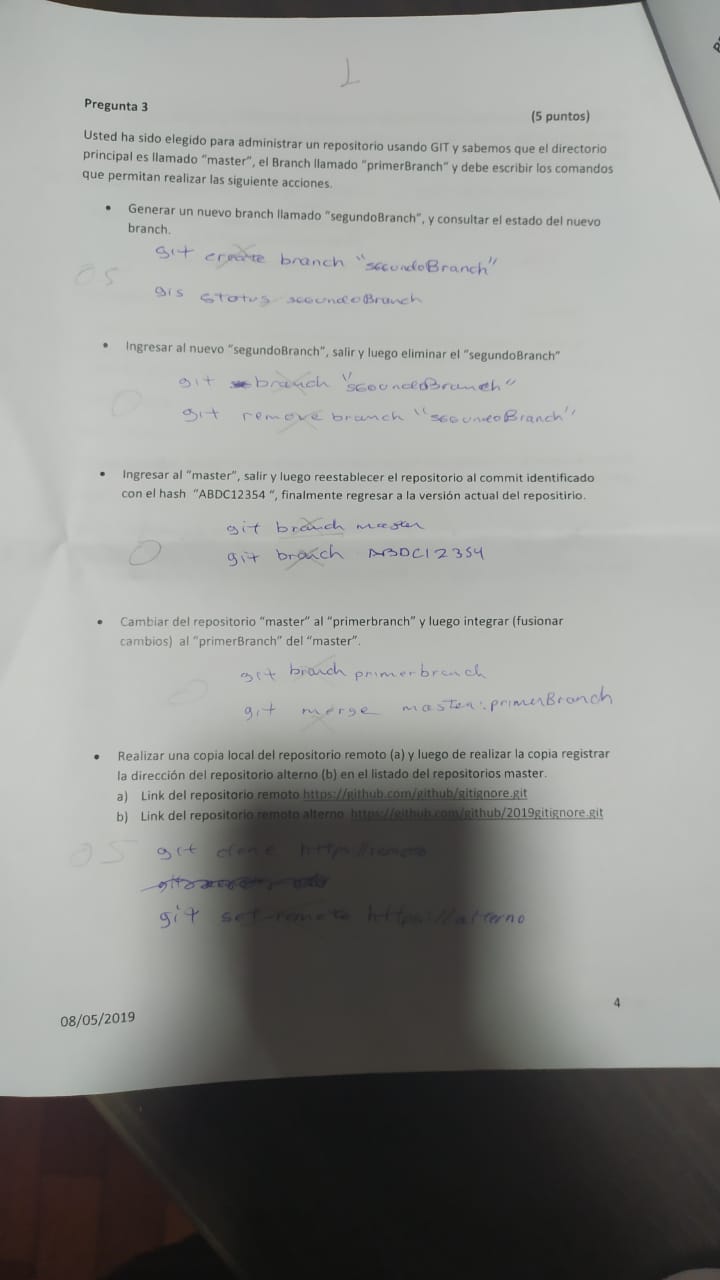 1
Pregunta 3
(5 puntos)
Usted ha sido elegido para administrar un repositorio usando GIT y sabemos que el directorio
principal es llamado "master", el Branch llamado "primerBranch" y debe escribir los comandos
que permitan realizar las siguiente acciones.
• Generar un nuevo branch llamado "segundoBranch", y consultar el estado del nuevo
branch.
git create branch "segundoBranch"
05
gis status segundoBranch
• Ingresar al nuevo "segundoBranch", salir y luego eliminar el "segundoBranch"
git branch "segundoBranch"
0
git remove branch "segundoBranch"
• Ingresar al "master", salir y luego reestablecer el repositorio al commit identificado
con el hash "ABDC12354 ", finalmente regresar a la versión actual del repositirio.
git branch master
0
git branch ABDC12354
• Cambiar del repositorio "master" al "primerbranch" y luego integrar (fusionar
cambios) al "primerBranch" del "master".
git branch primerbranch
0
git merge master:primerBranch
• Realizar una copia local del repositorio remoto (a) y luego de realizar la copia registrar
la dirección del repositorio alterno (b) en el listado del repositorios master.
a) Link del repositorio remoto https://github.com/github/gitignore.git
b) Link del repositorio remoto alterno https://github.com/github/2019gitignore.git
05
git clone https://remoto
git set-remote https://alterno
4
08/05/2019